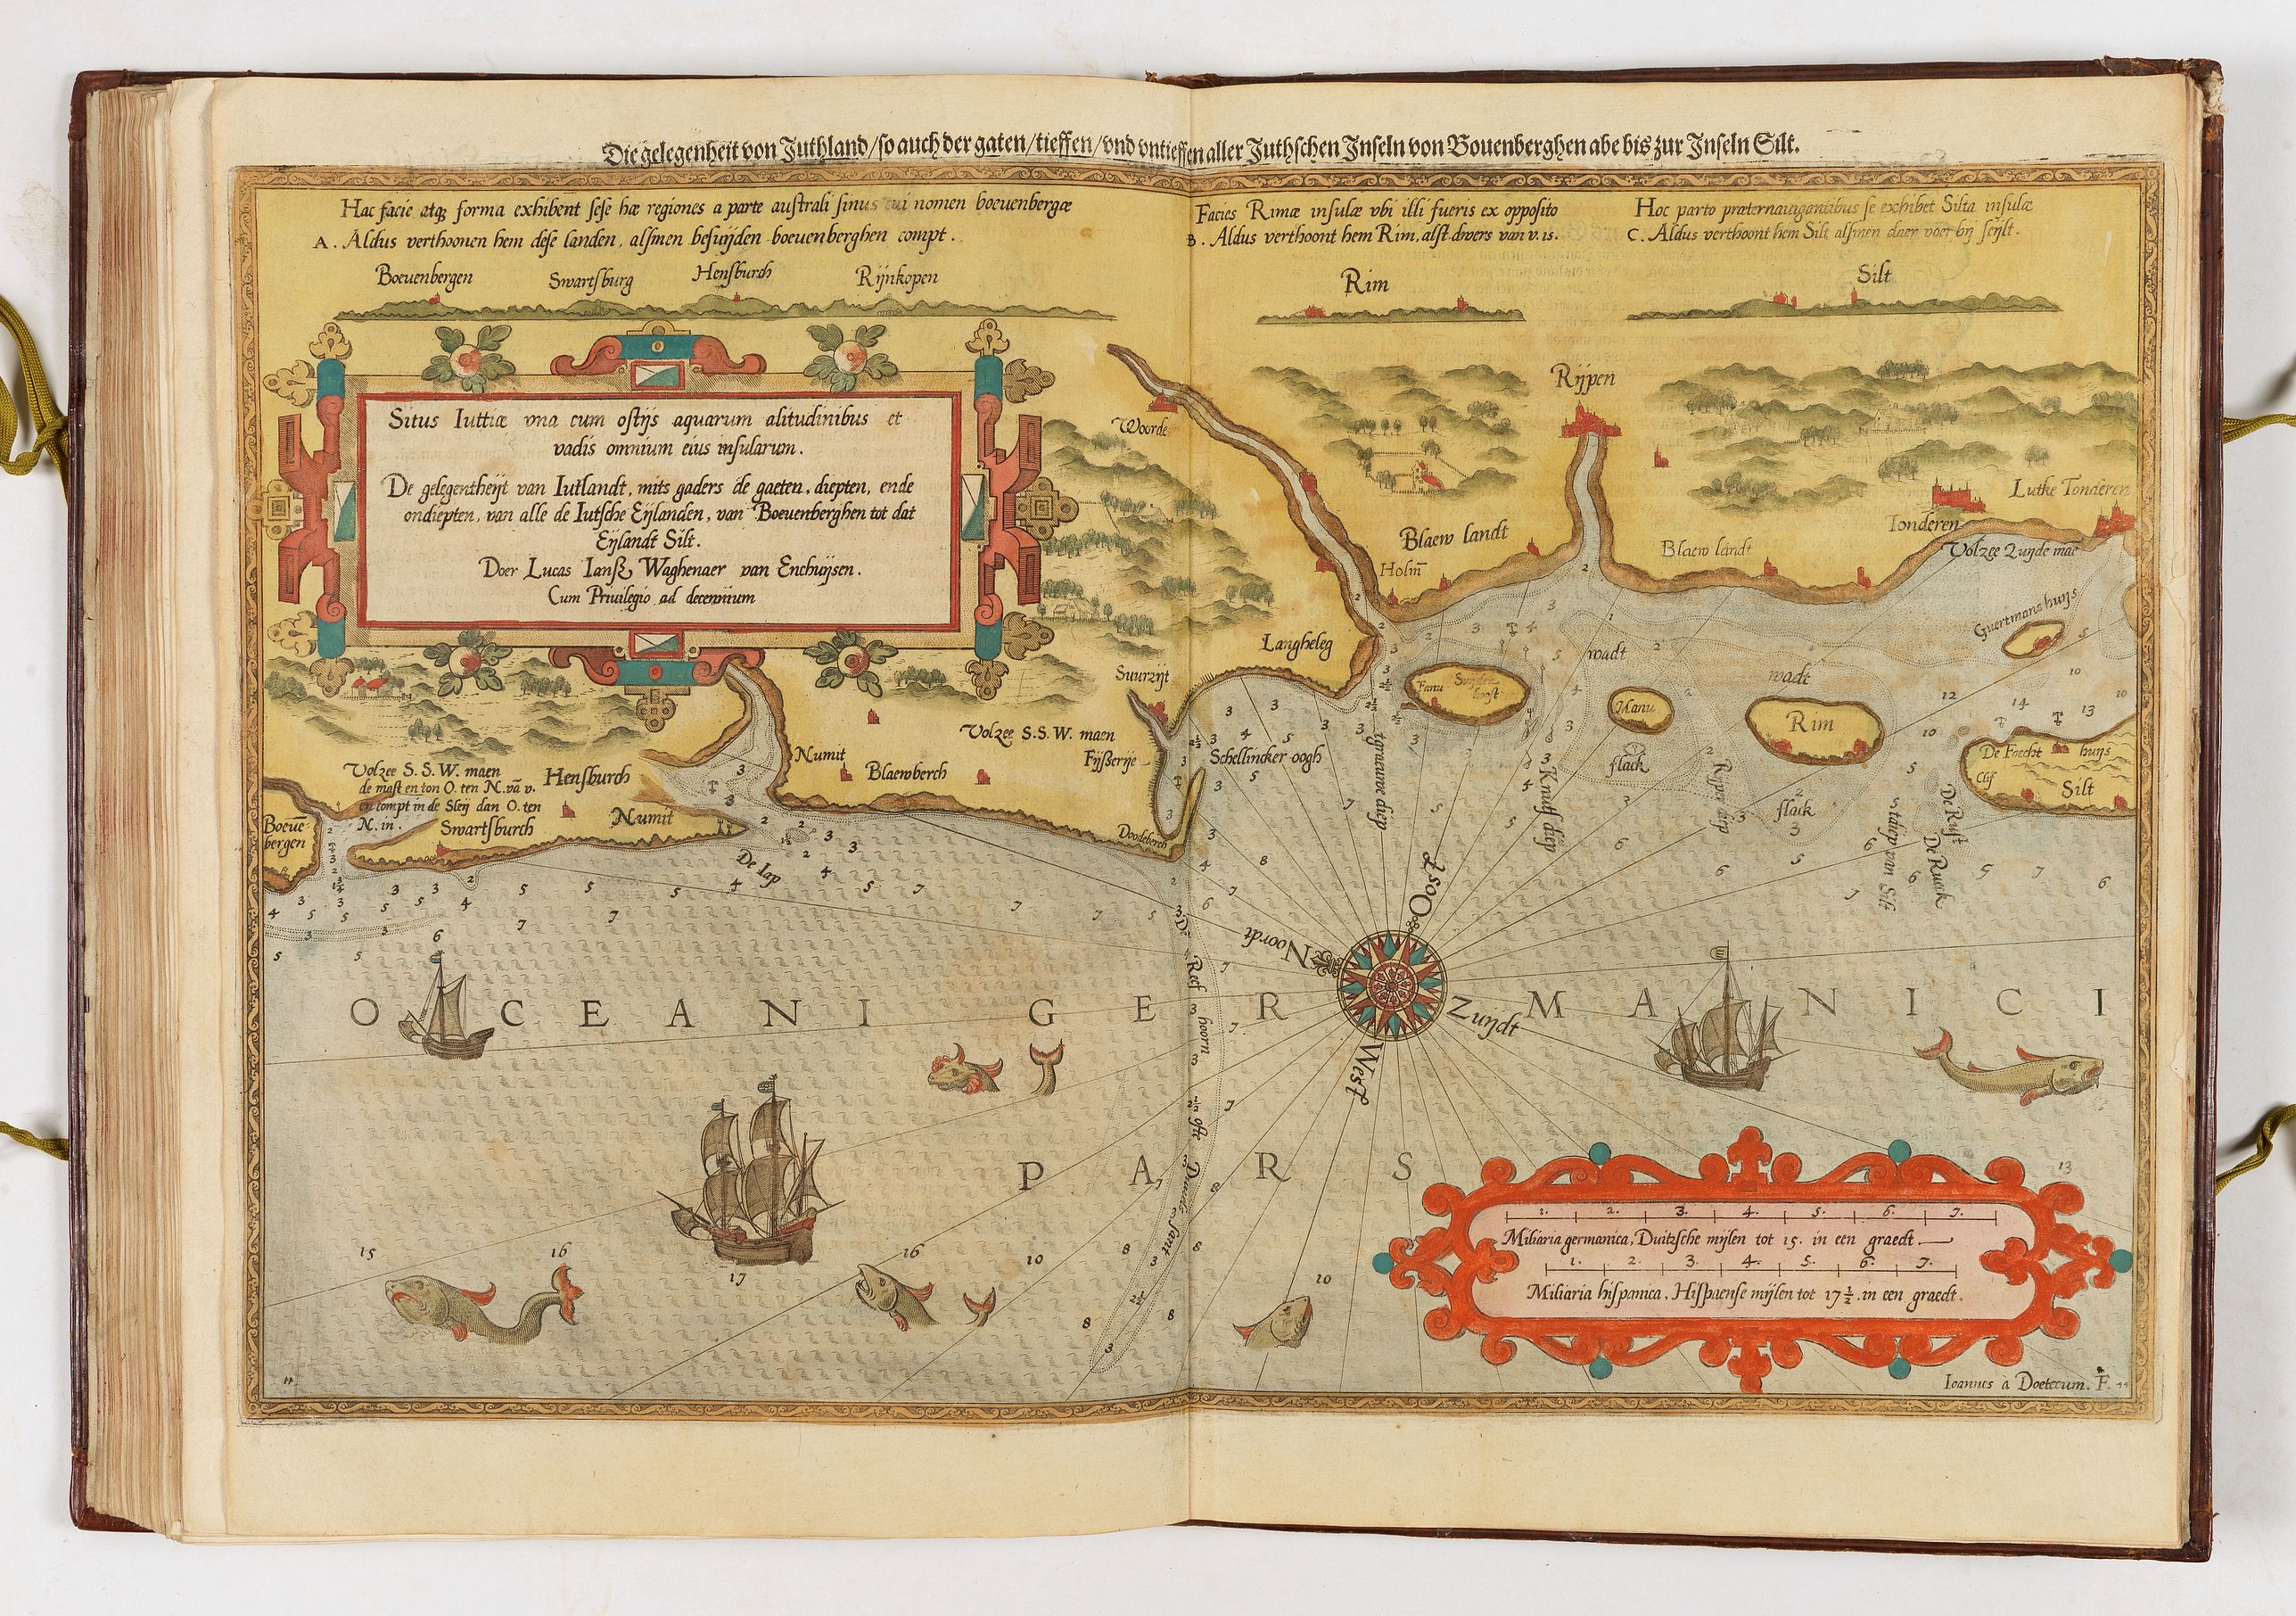 Die gelegenheit von Juthland/so auch der gaten/tieffen/vnd vntieffen aller Juthschen Inseln von Bouenberghen abe bis zur Inseln Silt.
Hac facie atq₃ forma exhibent sese hæ regiones a parte australi sinus cui nomen boeuenbergæ
A. Aldus verthoonen hem dese landen, alsmen besuijden boeuenberghen compt.
Facies Rimæ insulæ vbi illi fueris ex opposito
B. Aldus verthoont hem Rim, alst dwers van v. is.
Hoc parto præternauigantibus se exhibet Silta insulæ
C. Aldus verthoont hem Silt alsmen daer voer bij seijlt.
Boeuenbergen
Swartsburg
Hensburch
Rijnkopen
Rim
Silt
Situs Iuttiæ vna cum ostijs aquarum altitudinibus et
vadis omnium eius insularum.
De gelegentheijt van Iutlandt, mits gaders de gaeten, diepten, ende
ondiepten, van alle de Iutsche Eijlanden, van Boeuenberghen tot dat
Eijlandt Silt.
Doer Lucas Ianß Waghenaer van Enchuijsen.
Cum Priuilegio ad decennium
Woorde
Rijpen
Blaew landt
Holm̄
Blaew landt
Tonderen
Lutke Tonderen
Volzee Zuijde mae
Guertmans huijs
Langheleg
Suurzijt
Fanu
Manu
Rim
wadt
wadt
flack
flack
De Foecht huijs
Clif
Silt
Volzee S.S.W. maen
de mast en ton O. ten N. vā v.
en compt in de Sleij dan O. ten
N. in.
Boeuē-
bergen
Hensburch
Swartsburch
Numit
Numit
Blaewberch
Volzee S.S.W. maen
Fijßerije
Doodeberch
Schellincker oogh
De Iap
tgrauwe diep
Knuts diep
Rijper diep
tdiep van Silt
De Rust
De Ruack
De Reef hoorn ofte Duuels Sant
Oost
Noordt
Zuijdt
West
OCEANI GERMANICI
PARS
1. 2. 3. 4. 5. 6. 7.
Miliaria germanica, Duitzsche mijlen tot 15. in een graedt.
1. 2. 3. 4. 5. 6. 7.
Miliaria hispanica, Hispaense mijlen tot 17½ in een graedt.
15 16 17 16 10 10 13
Ioannes à Doetecum. F.